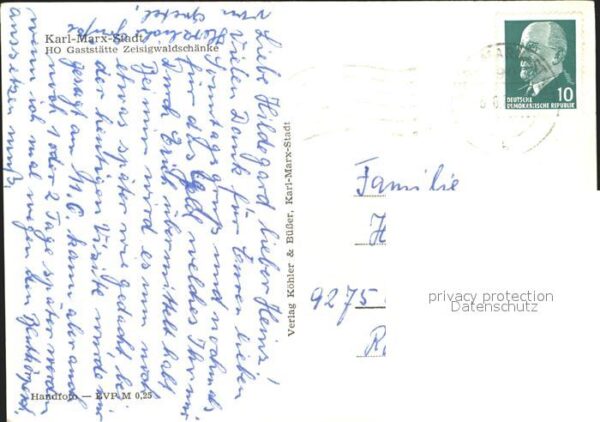 Karl-Marx-Stadt
HO Gaststätte Zeisigwaldschänke
Liebe Hildegard, lieber Heinz!
Vielen Dank für Euren lieben
Sonntagsgruß und nochmals
für das Geld welches Ihr mir
durch übermittelt habt
Bei mir wird es nun noch
etwas später wie gedacht, bei
der heutigen Visite wurde mir
gesagt am 11.6. kann aber auch
noch 1 oder 2 Tage später werden
wenn ich mal wegen dem
aussetzen muß.
Herzlich grüßt
Handfoto — EVP M 0,25
Verlag Köhler & Büßer, Karl-Marx-Stadt
10
DEUTSCHE
DEMOKRATISCHE REPUBLIK
Familie
H
9275
R
privacy protection
Datenschutz